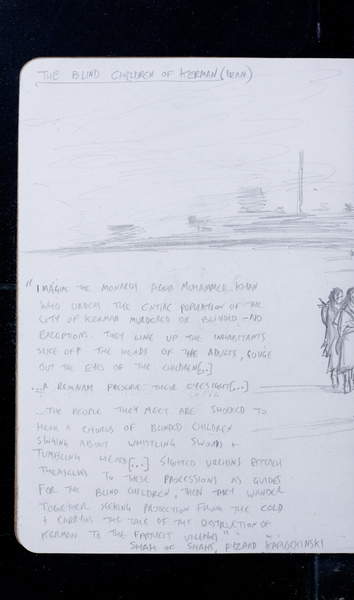 THE BLIND CHILDREN OF KERMAN (IRAN)
"IMAGINE THE MONARCH AGHA MOHAMMED KHAN
WHO ORDERS THE ENTIRE POPULATION OF THE
CITY OF KERMAN MURDERED OR BLINDED - NO
EXCEPTIONS. THEY LINE UP THE INHABITANTS
SLICE OFF THE HEADS OF THE ADULTS, GOUGE
OUT THE EYES OF THE CHILDREN[..]
...A REMNANT PRESERVE THEIR EYESIGHT[...]
...THE PEOPLE THEY MEET ARE SHOCKED TO
HEAR A CHORUS OF BLINDED CHILDREN
SINGING ABOUT WHISTLING SWORDS +
TUMBLING HEADS[...] SIGHTED URCHINS ATTACH
THEMSELVES TO THESE PROCESSIONS AS GUIDES
FOR THE BLIND CHILDREN, THEN THEY WANDER
TOGETHER SEEKING PROTECTION FROM THE COLD
+ CARRYING THE TALE OF THE DESTRUCTION OF
KERMAN TO THE FARTHEST VILLAGES"
SHAH OF SHAHS, RYZARD KAPUSCKINSKI